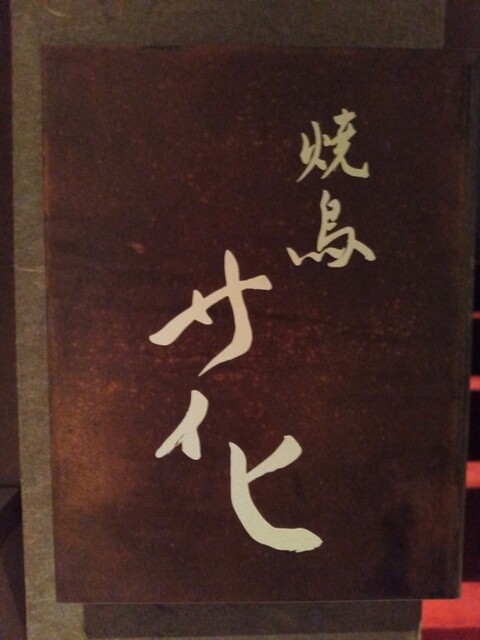 焼鳥
サイヒ